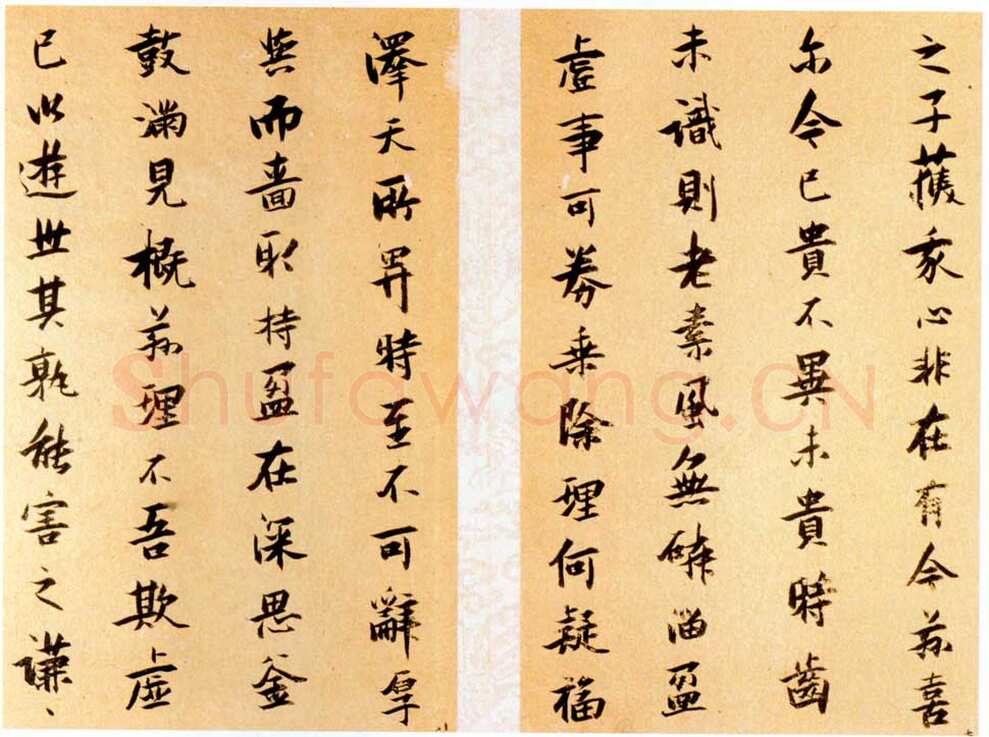 之子獲我心非在有今茲喜
尔今已貴不異未貴時齒
未識則老素風無磷淄盈
虛事可券乘除理何疑福
澤天所畀時至不可辭厚
與而嗇取持盈在深思釜
鼓滿見概茲理不吾欺虛
己以遊世其孰能害之謙、
七
八
Shufawang.CN